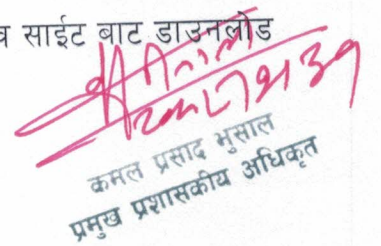 साईट बाट डाउनलोड
कमल प्रसाद भुसाल
प्रमुख प्रशासकीय अधिकृत